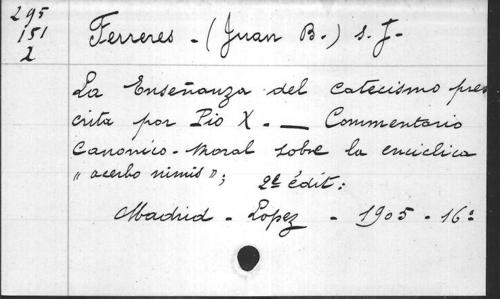 295
151
2
Ferreres - (Juan B.) s. J-
La Enseñanza del catecismo pres
crita por Pio X. - Commentario
Canonico-Moral sobre la enciclica
"acerbo nimis"; 2e édit:
Madrid - Lopez - 1905 - 16º